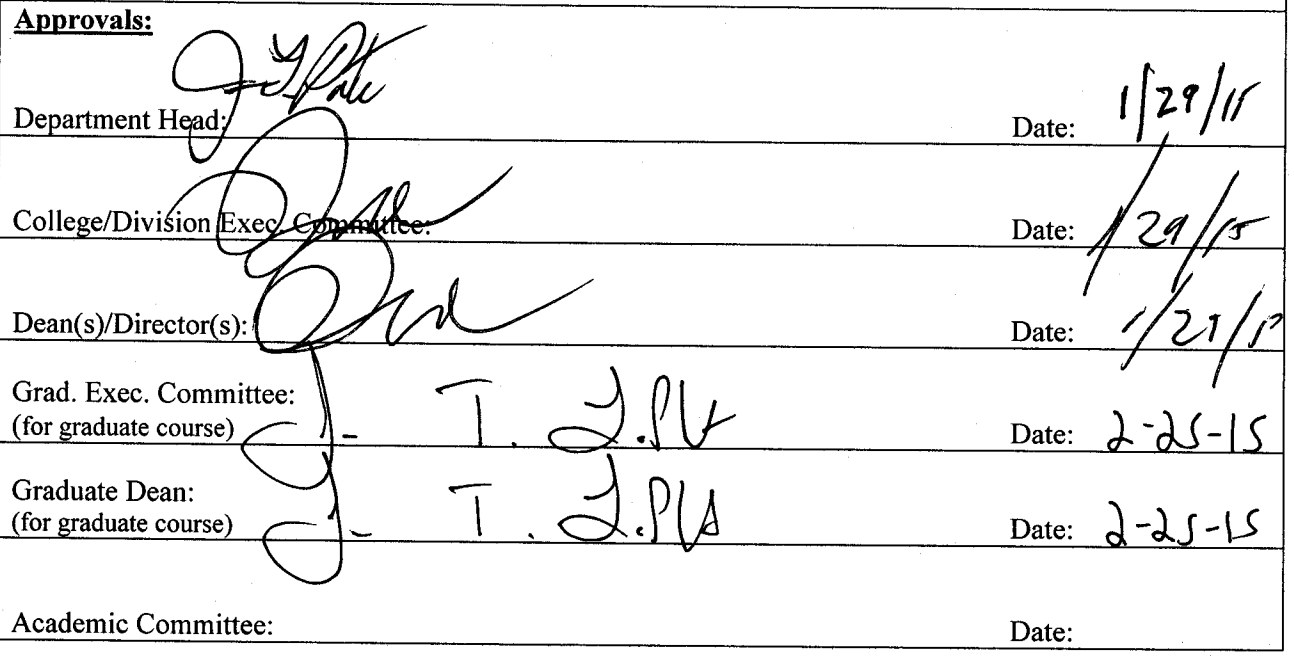 Approvals:
Department Head: Date: 1/29/15
College/Division Exec. Committee: Date: 1/29/15
Dean(s)/Director(s): Date: 1/29/15
Grad. Exec. Committee:
(for graduate course) Date: 2-25-15
Graduate Dean:
(for graduate course) Date: 2-25-15
Academic Committee: Date: